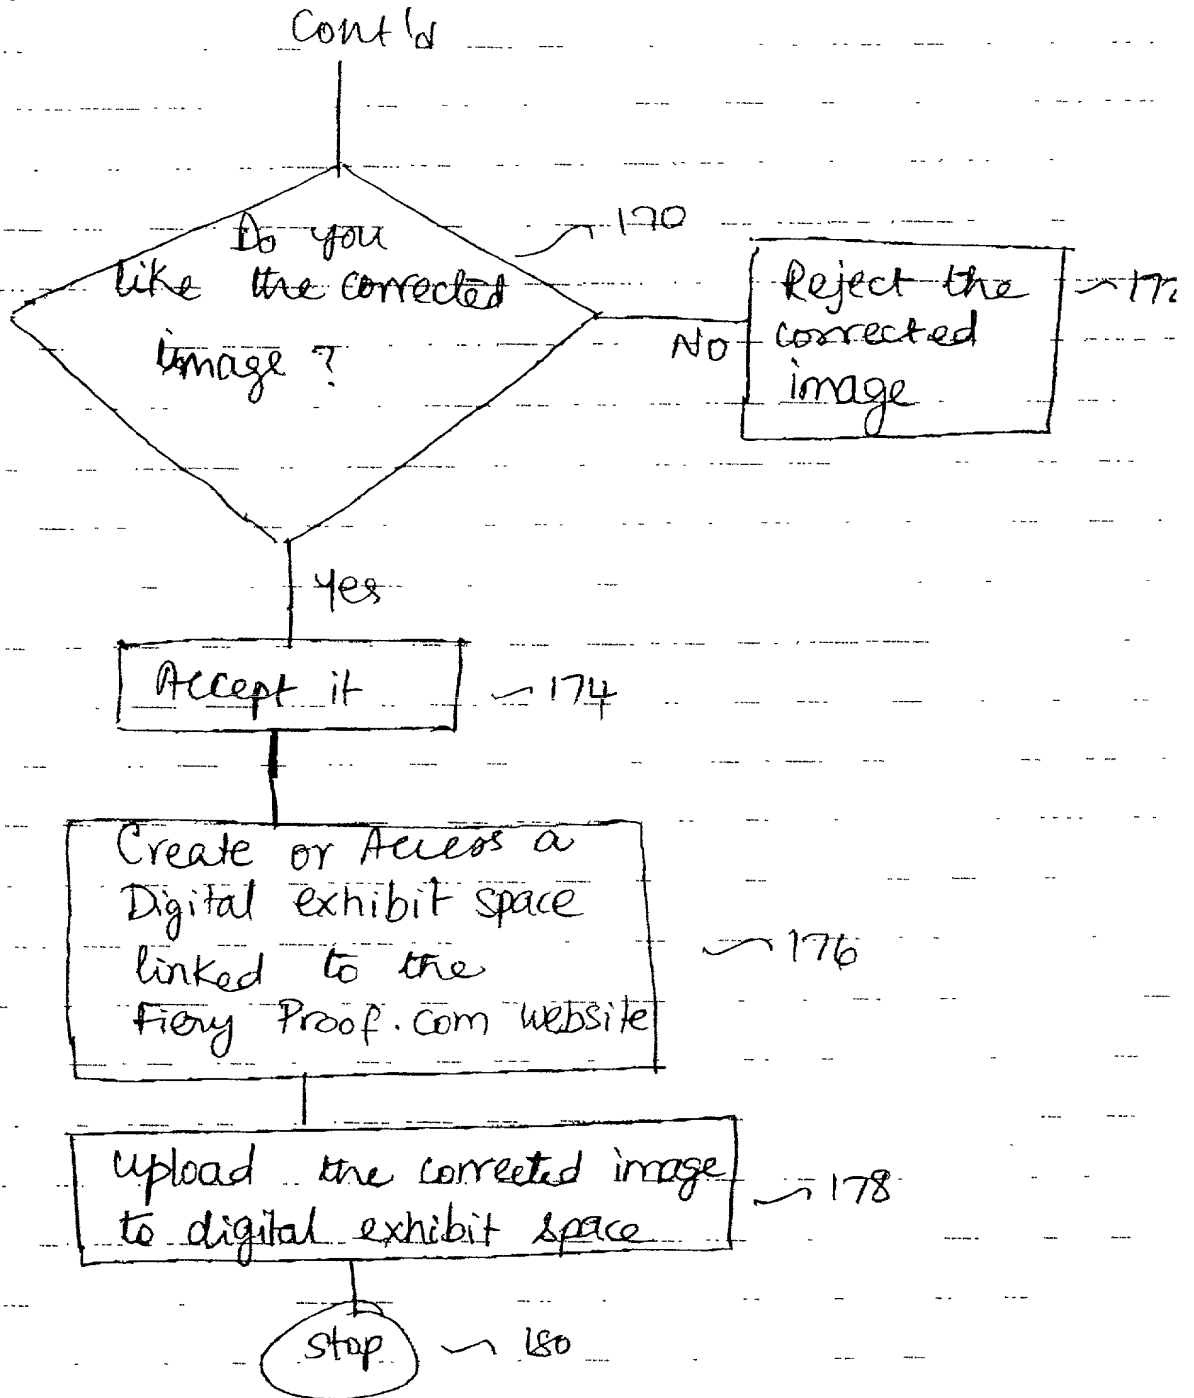 Cont'd
Do you
like the corrected
image ?
170
NO
Reject the
corrected
image
172
Yes
Accept it
174
Create or Access a
Digital exhibit space
linked to the
Fiery Proof.com website
176
upload the corrected image
to digital exhibit space
178
stop
180